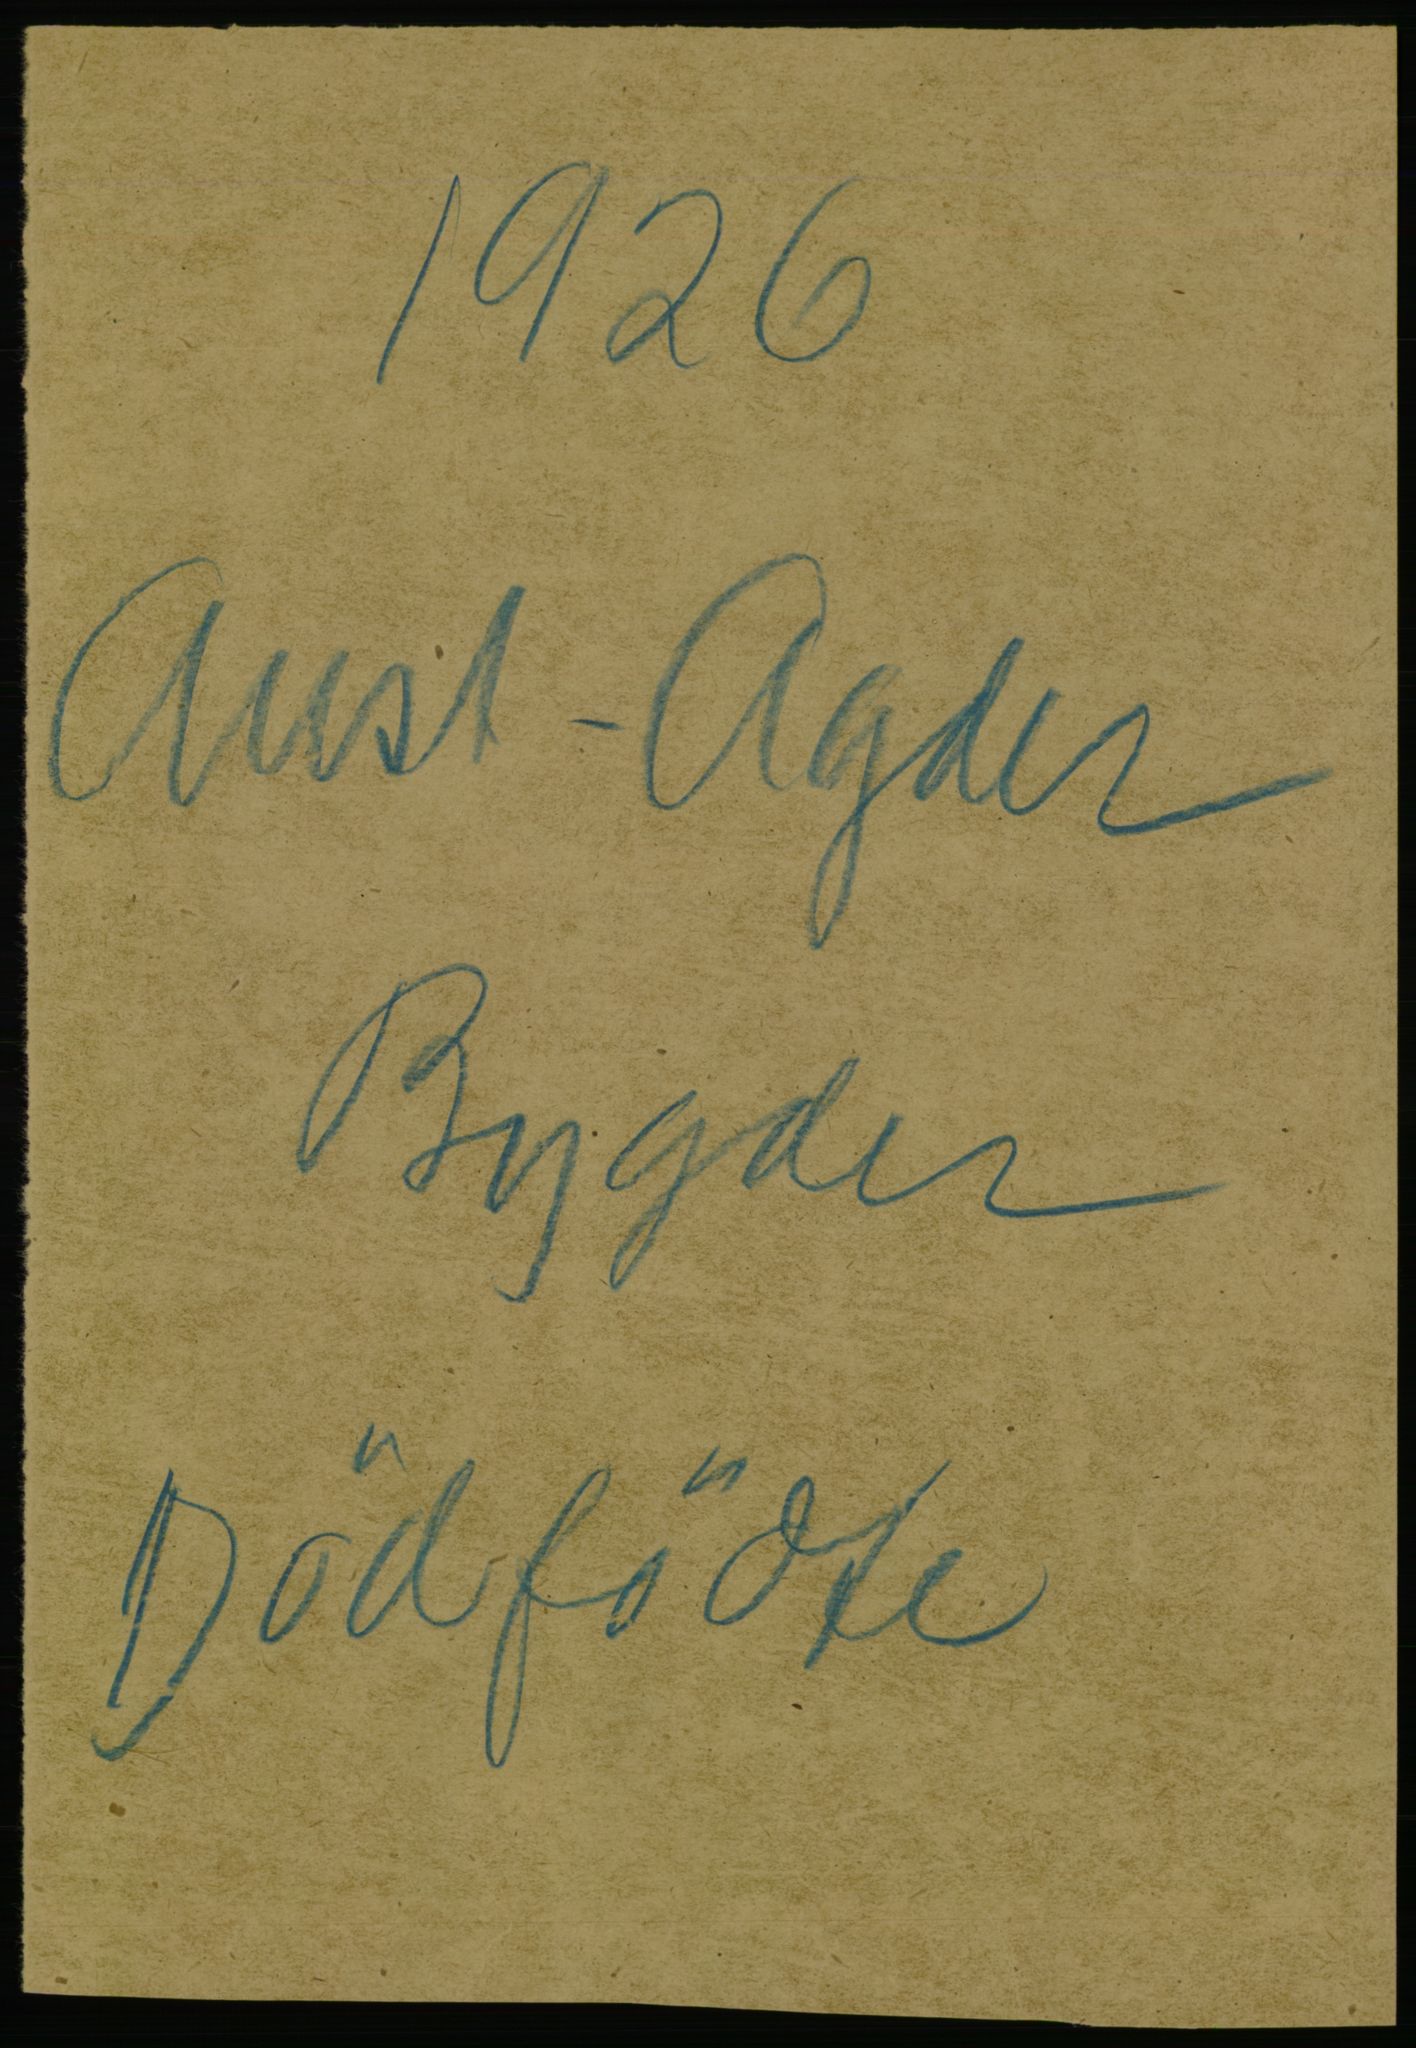 1926
Aust-Agder
Bygder
Dödfödte